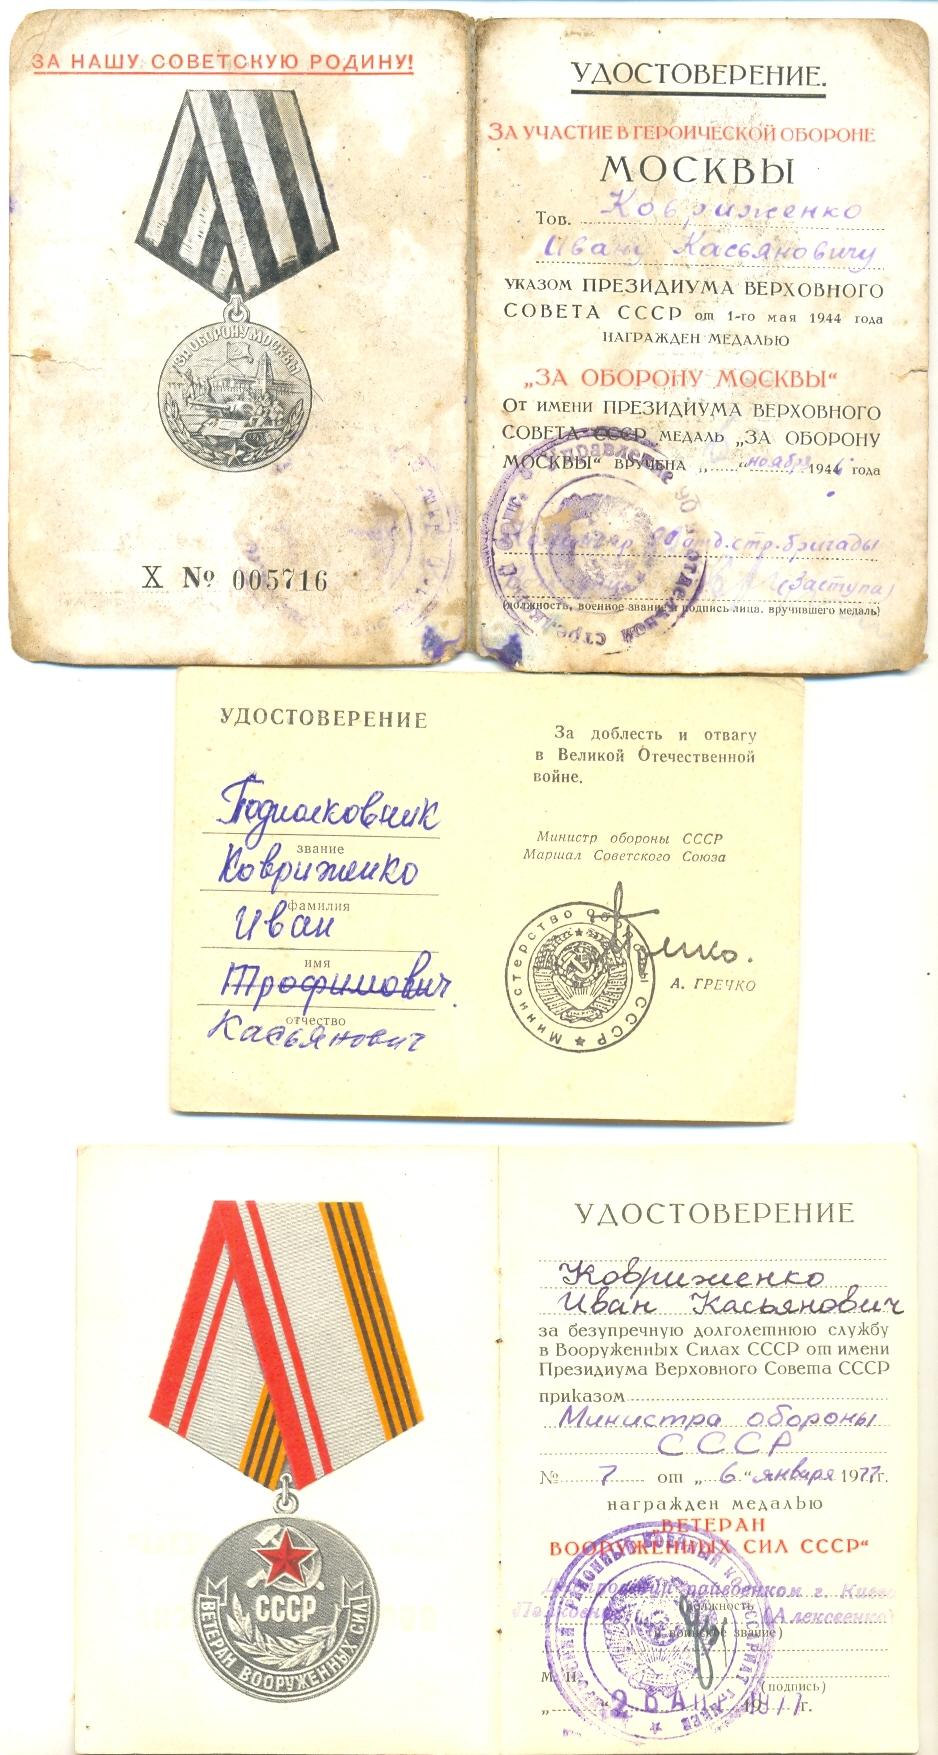 ЗА НАШУ СОВЕТСКУЮ РОДИНУ!
ЗА ОБОРОНУ МОСКВЫ
X № 005716
УДОСТОВЕРЕНИЕ.
ЗА УЧАСТИЕ В ГЕРОИЧЕСКОЙ ОБОРОНЕ
МОСКВЫ
Тов. Ковриженко
Ивану Касьяновичу
УКАЗОМ ПРЕЗИДИУМА ВЕРХОВНОГО
СОВЕТА СССР от 1-го мая 1944 года
НАГРАЖДЕН МЕДАЛЬЮ
„ЗА ОБОРОНУ МОСКВЫ“
От имени ПРЕЗИДИУМА ВЕРХОВНОГО
СОВЕТА СССР МЕДАЛЬ „ЗА ОБОРОНУ
МОСКВЫ“ ВРУЧЕНА „ “ ноября 194 года
отд. стр. бригады
(Заступа)
(должность, военное звание и подпись лица, вручившего медаль)
УДОСТОВЕРЕНИЕ
Подполковник
звание
Ковриженко
фамилия
Иван
имя
Трофимович.
отчество
Касьянович
За доблесть и отвагу
в Великой Отечественной
войне.
Министр обороны СССР
Маршал Советского Союза
Министерство Обороны СССР
А. ГРЕЧКО
СССР
ВЕТЕРАН ВООРУЖЕННЫХ СИЛ
УДОСТОВЕРЕНИЕ
Ковриженко
Иван Касьянович
за безупречную долголетнюю службу
в Вооруженных Силах СССР от имени
Президиума Верховного Совета СССР
приказом
Министра обороны
СССР
№ 7 от „6“ января 1977г.
награжден медалью
„ВЕТЕРАН
ВООРУЖЕННЫХ СИЛ СССР“
райвоенком г. Киева
должность
(Алексеенко)
(воинское звание)
М. П.
(подпись)
„ “ 19 г.